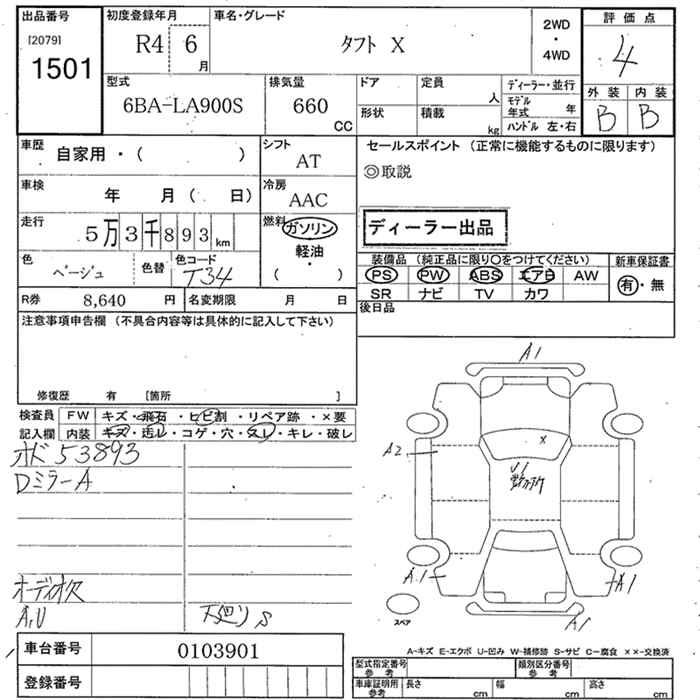 出品番号
[2079]
1501
初度登録年月
R4 6月
車名・グレード
タフト X
2WD
・
4WD
評価点
4
外装 内装
B B
型式
6BA-LA900S
排気量
660 CC
ドア
形状
定員
人
積載
kg
ディーラー・並行
モデル年式 年
ハンドル 左・右
車歴
自家用・( )
シフト
AT
車検
年 月( 日)
冷房
AAC
走行
5万3千893 km
燃料
ガソリン
軽油
・
( )
色
ベージュ
色替
色コード
T34
R券 8,640 円
名変期限 月 日
セールスポイント(正常に機能するものに限ります)
◎取説
ディーラー出品
装備品(純正品に限り〇をつけてください)
PS PW ABS エアB AW
SR ナビ TV カワ
新車保証書
有・無
後日品
注意事項申告欄(不具合内容等は具体的に記入して下さい)
修復歴 有 [箇所 ]
検査員 FW キズ・飛石・ヒビ割・リペア跡・×要
記入欄 内装 キズ・汚レ・コゲ・穴・スレ・キレ・破レ
オド53893
DミラーA
オーディオ欠
A,U
下廻りS
A1
A2
X
U1
A1
A1
A1
スペア
A-キズ E-エクボ U-凹み W-補修跡 S-サビ C-腐食 ××-交換済
車台番号 0103901
登録番号
型式指定番号
参考
類別区分番号
参考
車庫証明用
参考
長さ cm
幅 cm
高さ cm